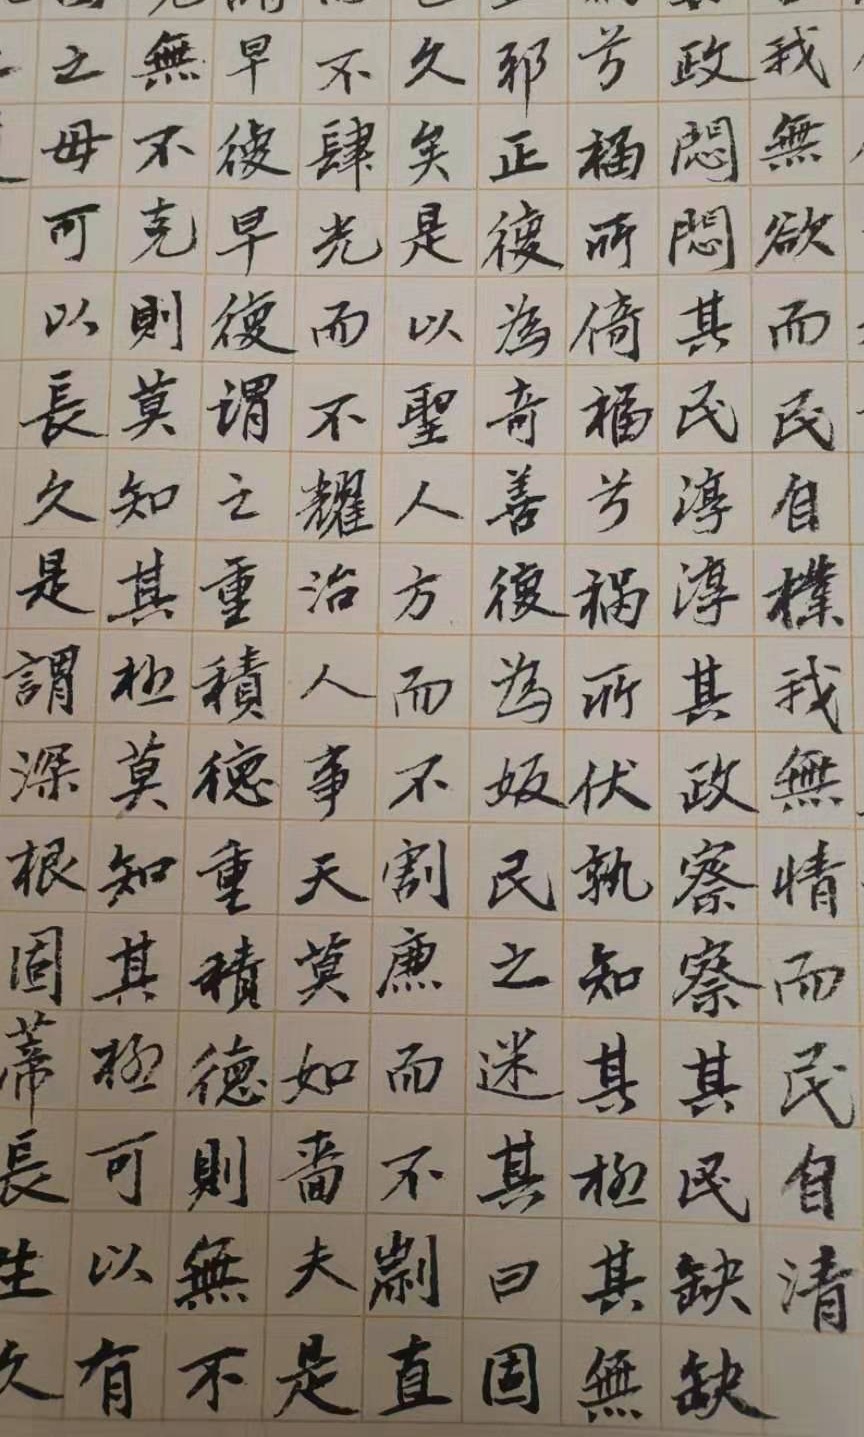 我無欲而民自樸我無情而民自清
政悶悶其民淳淳其政察察其民缺缺
兮福所倚福兮祸所伏孰知其極其無
邪正復為奇善復為民之迷其曰固
久矣是以聖人方而不割廉而不劌直
不肆光而不耀治人事天莫如嗇夫是
早復早復谓之重積德重積德則無不
無不克則莫知其極莫知其極可以有
之母可以長久是謂深根固蒂長生久